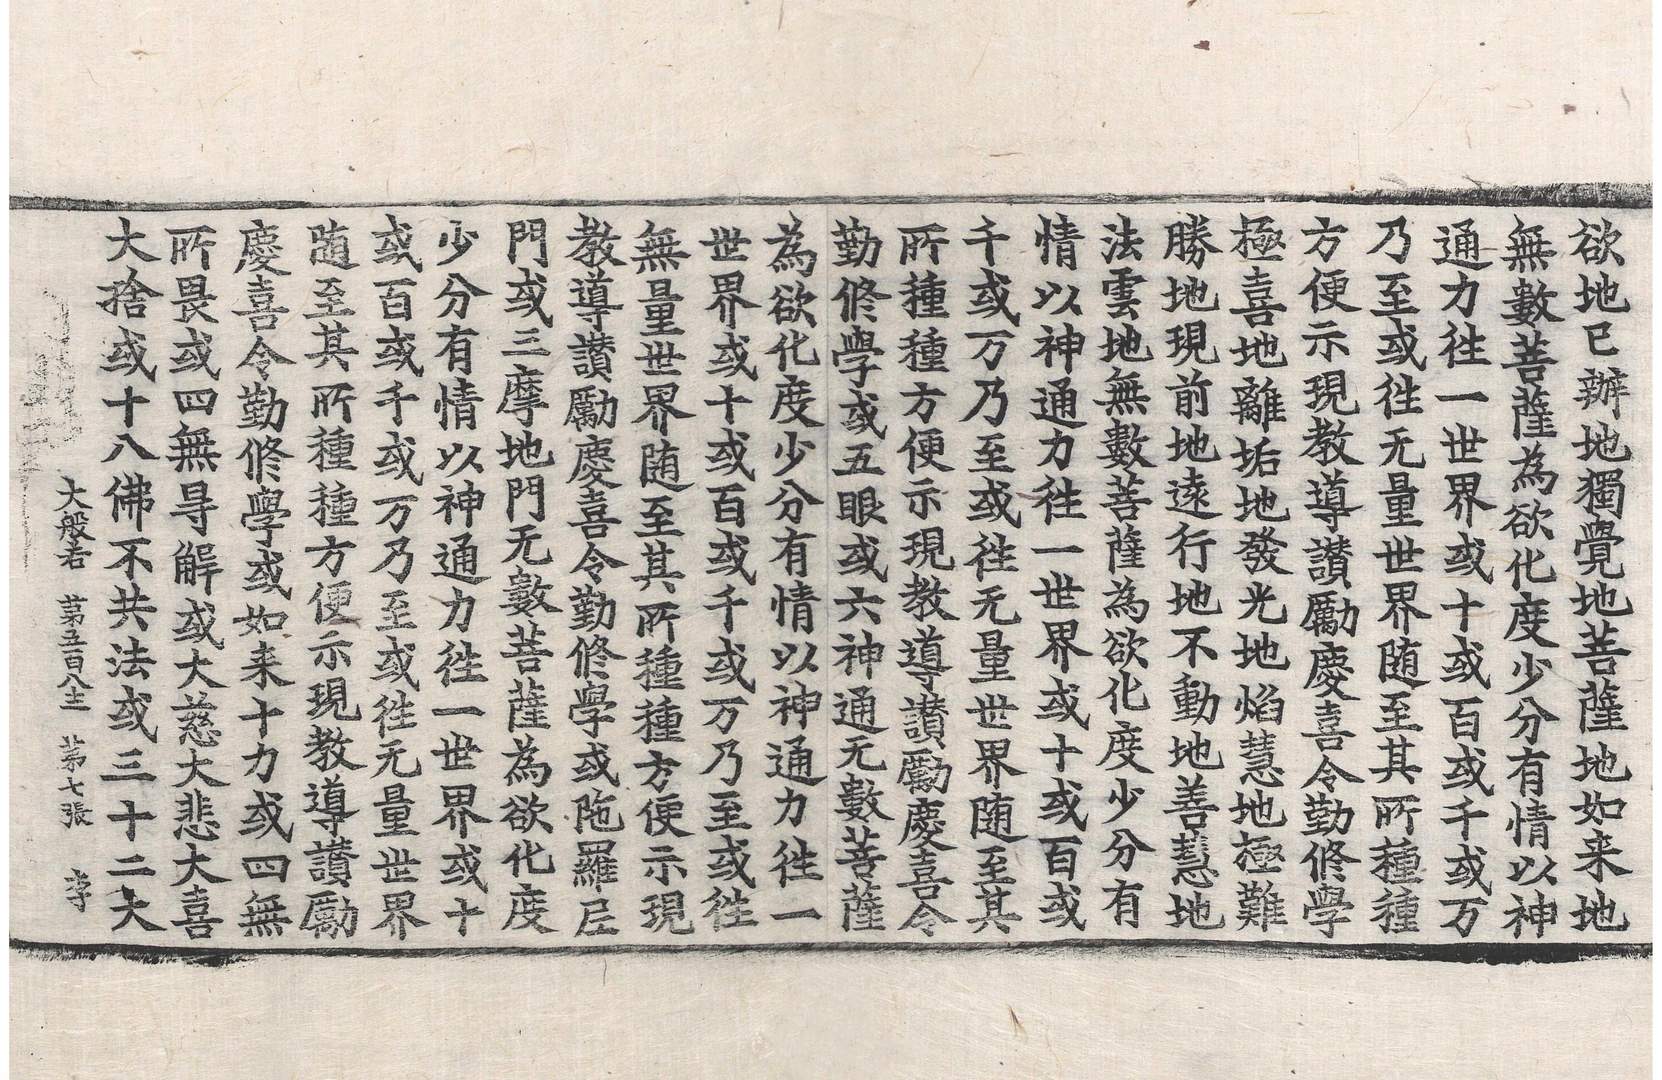 欲地已辦地獨覺地菩薩地如来地
無數菩薩為欲化度少分有情以神
通力徃一世界或十或百或千或万
乃至或徃无量世界随至其所種種
方便示現教導讃勵慶喜令勤修學
極喜地離垢地發光地焰慧地極難
勝地現前地遠行地不動地善慧地
法雲地無數菩薩為欲化度少分有
情以神通力徃一世界或十或百或
千或万乃至或徃无量世界随至其
所種種方便示現教導讃勵慶喜令
勤修學或五眼或六神通无數菩薩
為欲化度少分有情以神通力徃一
世界或十或百或千或万乃至或徃
無量世界随至其所種種方便示現
教導讃勵慶喜令勤修學或陁羅尼
門或三摩地門无數菩薩為欲化度
少分有情以神通力徃一世界或十
或百或千或万乃至或徃无量世界
随至其所種種方便示現教導讃勵
慶喜令勤修學或如来十力或四無
所畏或四無㝵解或大慈大悲大喜
大捨或十八佛不共法或三十二大
大般若 第五百八十二 第七張 李